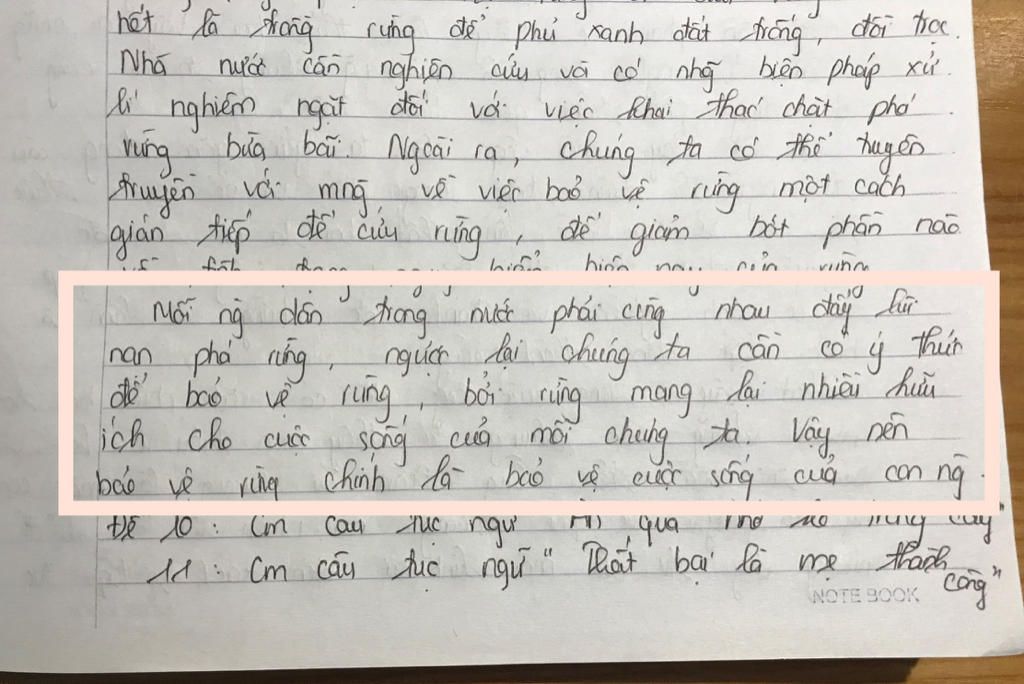 nhất là trồng rừng để phủ xanh đất trống, đồi trọc.
Nhà nước cần nghiên cứu và có nhg biện pháp xử
lí nghiêm ngặt đối với việc khai thác chặt phá
rừng bừa bãi. Ngoài ra, chúng ta có thể tuyên
truyền với mng về việc bảo vệ rừng một cách
gián tiếp để cứu rừng, để giảm bớt phần nào
hiện nay của rừng
Mỗi ng dân trong nước phải cùng nhau đẩy lùi
nạn phá rừng, ngược lại chúng ta cần có ý thức
để bảo vệ rừng, bởi rừng mang lại nhiều hữu
ích cho cuộc sống của mỗi chúng ta. Vậy nên
bảo vệ rừng chính là bảo vệ cuộc sống của con ng.
Đề 10: Cm câu tục ngữ "Ăn quả nhớ kẻ trồng cây"
11: Cm câu tục ngữ "Thất bại là mẹ thành
công"
NOTE BOOK